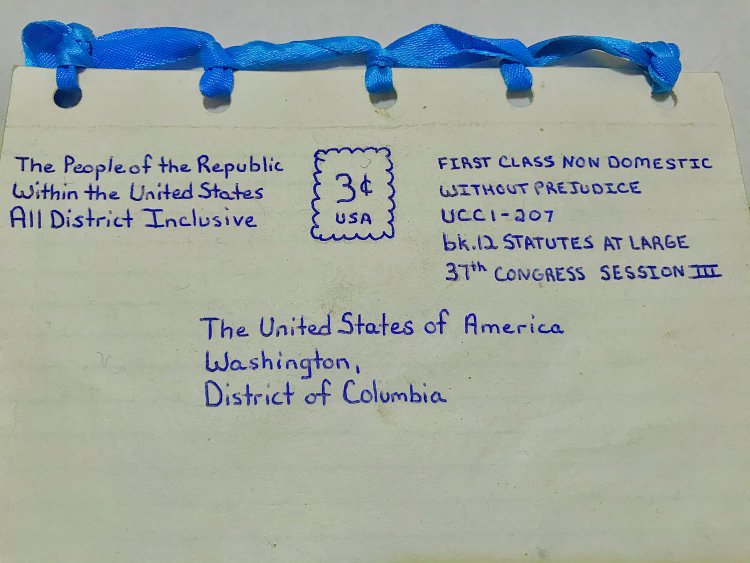 The People of the Republic
Within the United States
All District Inclusive
3¢
USA
FIRST CLASS NON DOMESTIC
WITHOUT PREJUDICE
UCC 1-207
bk.12 STATUTES AT LARGE
37th CONGRESS SESSION III
The United States of America
Washington,
District of Columbia